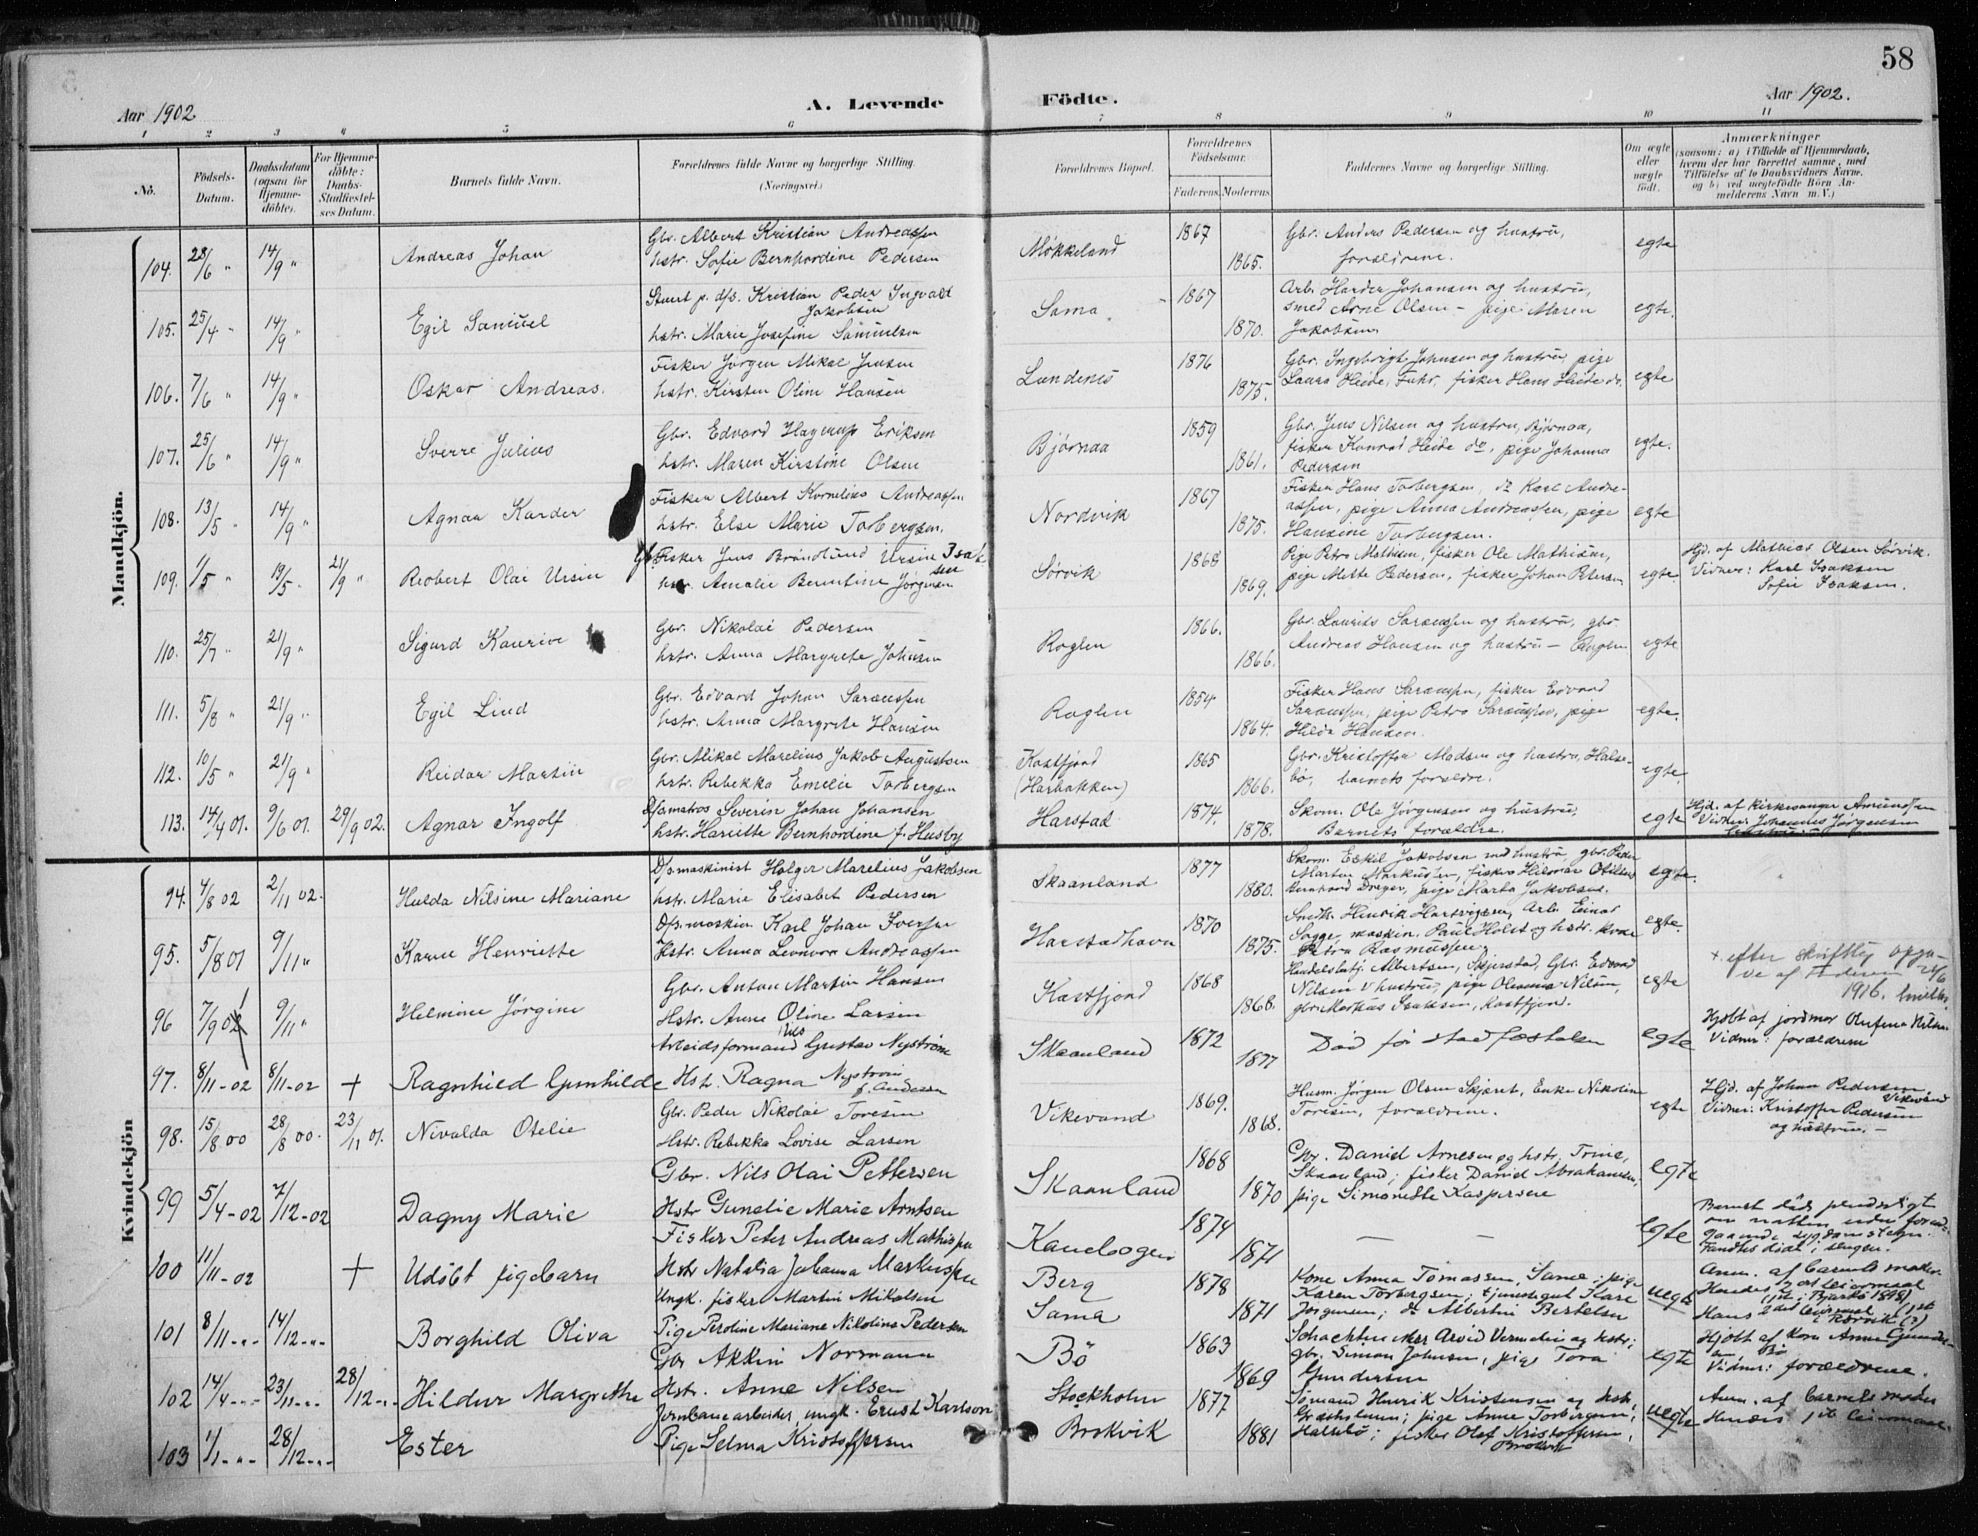 58
Aar 1902.
A. Levende Födte.
Aar 1902.
1 2 3 4 5 6 7 8 9 10 11
No.
Födsels-Datum.
Daabsdatum (ogsaa for Hjemmedöbte).
For Hjemmedöbte: Daabs-Stadfæstelses Datum.
Barnets fulde Navn.
Forældrenes fulde Navne og borgerlige Stilling. (Næringsvei.)
Forældrenes Bopæl.
Forældrenes Födselsaar.
Faderens. Moderens.
Faddernes Navne og borgerlige Stilling.
Om ægte eller uægte födt.
Anmærkninger (saasom: a) i Tilfælde af Hjemmedaab, hvem der har forrettet samme, med Tilföielse af to Daabsvidners Navne, og b) ved uægtefödte Börn Anmelderens Navn m. V.)
Mandkjön.
104. 28/6 " 14/9 " Andreas Johan
Gbr. Albert Kristian Andreassen
hstr. Sofie Bernhordine Pedersen
Møkkeland 1867 1865.
Gbr. Anders Pedersen og hustru,
forældrene.
egte
105. 25/4 " 14/9 " Egil Samuel
Stuert p. dfs. Kristian Peder Ingvald Jakobsen
hstr. Marie Josefine Samuelsen
Sama 1867 1870.
Arb. Harder Johansen og hustru,
smed Arne Olsen - pige Maren
Jakobsen
egte.
106. 7/6 " 14/9 " Oskar Andreas.
Fisker Jørgen Mikal Jensen
hstr. Kirsten Oline Hansen
Lundenes 1876 1875.
Gbr. Ingebrigt Johnsen og hustru, pige
Laura Heide, Fuhr, fisker Hans Heide do.
egte
107. 25/6 " 14/9 " Sverre Julius
Gbr. Edvard Hagerup Eriksen
hstr. Maren Kirstine Olsen
Bjørnaa 1859 1861.
Gbr. Jens Nilsen og hustru, Bjørnaa,
fisker Konrad Heide do, pige Johanna
Pedersen
egte.
108. 13/5 " 14/9 " Agnar Karder
Fisker Albert Kornelius Andreassen
hstr. Else Marie Torbergsen.
Nordvik 1867 1875.
Fisker Hans Torbergsen, do Karl Andre-
assen, pige Anna Andreassen, pige
Hansine Torbergsen.
egte
109. 1/5 " 13/5 " 21/9 " Robert Olai Ursin
Fisker Jens Brøndlund Ursin Isaksen
hstr. Amalie Berntine Jørgensen
Sørvik 1868 1869.
Pige Petra Mathisen, fisker Ole Mathisen,
pige Mette Pedersen, fisker Johan Petersen
egte
Hjd. af Mathias Olsen Sørvik.
Vidner: Karl Isaksen
Sofie Isaksen.
110. 25/7 " 21/9 " Sigurd Kaurin
Gbr. Nikolai Pedersen
hstr. Anna Margrete Johnsen
Roglen 1866. 1866.
Gbr. Laurits Sørensen og hustru, gbr
Andreas Hansen og hustru - Roglen
egte
111. 5/8 " 21/9 " Egil Lind
Gbr. Edvard Johan Sørenssen
hstr. Anna Margrete Hansen
Roglen 1854 1864.
Fisker Hans Sørenssen, fisker Edvard
Sørenssen, pige Petra Sørenssen, pige
Hilda Hansen.
egte.
112. 10/5 " 21/9 " Reidar Martin
Gbr. Mikal Marelius Jakob Augustsen
hstr. Rebekka Emelie Torbergsen
Kastfjord
(Harbakken) 1865 1866.
Gbr. Kristoffer Madsen og hustru, Halse-
bø, barnets forældre.
egte.
113. 14/4 01. 9/6 01. 29/9 02. Agnar Ingolf
Dfs.matros Severin Johan Johansen
hstr. Hariette Bernhordine f. Husby
Harstad 1874. 1878.
Skom. Ole Jørgensen og hustru,
Barnets forældre.
egte
Hjd. af kirkesanger Amundsen
Vidner: Johannes Jørgensen
Kvindekjön
94. 4/8 02 2/11 02. Hulda Nilsine Mariane
Dfs.maskinist Holger Marelius Jakobsen
hstr. Marie Elisabet Pedersen
Skaanland 1877 1880.
Skom. Eskil Jakobsen med hustru, gbr. Peder
Martin Markussen, fisker Hilmar Otilius
Bernhard Dreyer, pige Marta Jakobsen.
egte.
95. 5/8 01 9/11 " Karen Henriette
Dfs. maskin. Karl Johan Iversen
Hstr. Anna Leonora Andreassen
Harstadhavn 1870 1875.
Smedk. Henrik Hartvigsen, Arb. Einar
Sagge, maskin. Paul Holst og hstr. kone
Petra Rasmussen
egte.
96 7/9 02 9/11 " Helmine Jørgine
Gbr. Anton Martin Hansen
Hstr. Anne Oline Larsen
Kastfjord 1868 1868.
Handelsbetj. Albertsen, Skjerstad, Gbr. Edvard
Nilsen & hustru, pige Oleanna Nilsen,
gbr. Markus Isaksen, Kastfjord.
egte
+ efter skriftlig opga-
ve af Faderen 24/6
1916.
97. 8/11-02 8/11-02 + Ragnhild Gunhilde
Arbeidsformand Nils Gustav Nystrøm
Hst. Ragna Nystrøm f. Andersen
Skaanland 1872 1877
Død før stadfæstelsen
egte
Hjdbt af jordmor Olufine Nilsen
Vidner: forældrene
98. 15/8 00 28/8 00. 23/11 01. Nivalda Otelie
Gbr. Peder Nikolai Toresen
Hstr. Rebekka Lovise Larsen
Vikevand 1869. 1868.
Husm. Jørgen Olsen Skjæret, Enke Nikoline
Toresen, forældrene.
egte
Hjd. af Johan Pedersen Vikevand
Vidner: Kristoffer Pedersen
og hustru. -
99 5/4-02 7/12-02 Dagny Marie
Gbr. Nils Olai Pettersen
Hstr Gunelie Marie Arntsen
Skaanland 1868 1870
Gbr. Daniel Arnesen og hstr. Trine,
Skaanland; fisker Daniel Abrahamsen,
pige Simonette Kaspersen
egte
100 11/11-02 + Udöbt pigebarn
Fisker Peter Andreas Mathissen
Hstr Natalia Johanna Markussen
Kanebogen 1874 1871
— —
egte
Barnet døde pludseligt
om natten uden foregaaende sygdomstegn.
Fandtes død i sengen.
101 8/11-"- 14/12-"- Borghild Oliva
Ungk. fisker Martin Mikalsen
Pige Peroline Mariane Nikoline Pedersen
Berg
Sama 1878 1871
Kone Anna Tomassen, Sama; pige
Karen Torbergsen; tjenestegut Kare
Jørgensen; do Albertin Bertelsen
uegte
Anm. af barnets moder
Hendes 2det leiermaal
(1ste i Bjarkö 1898)
Hans 2det leiermaal (1ste
102 14/4-"- 23/11-"- 28/12-"- Hildur Margrethe
Gbr Akkin Normann
Hstr. Anne Nilsen
Bö 1863 1869
Schachtmester Arvid Vermelin og hstr;
gbr. Simon Johnsen, pige Tora
Gundersen
egte
Hjdbt af Kone Anne Gunder-
Vidner: forældrene.
103 1/1-"- 28/12-"- Ester
Jernbanearbeider, ungk. Ernst Karlson
Pige Selma Kristoffersen
Stockholm
Brokvik 1877 1881
Sømand Henrik Kristensen og hstr,
pige Anne Torbergsen,
Halsebö; fisker Olaf Kristoffersen,
Brokvik
uegte
Anm. af barnets moder
Hendes 1ste leiermaal.